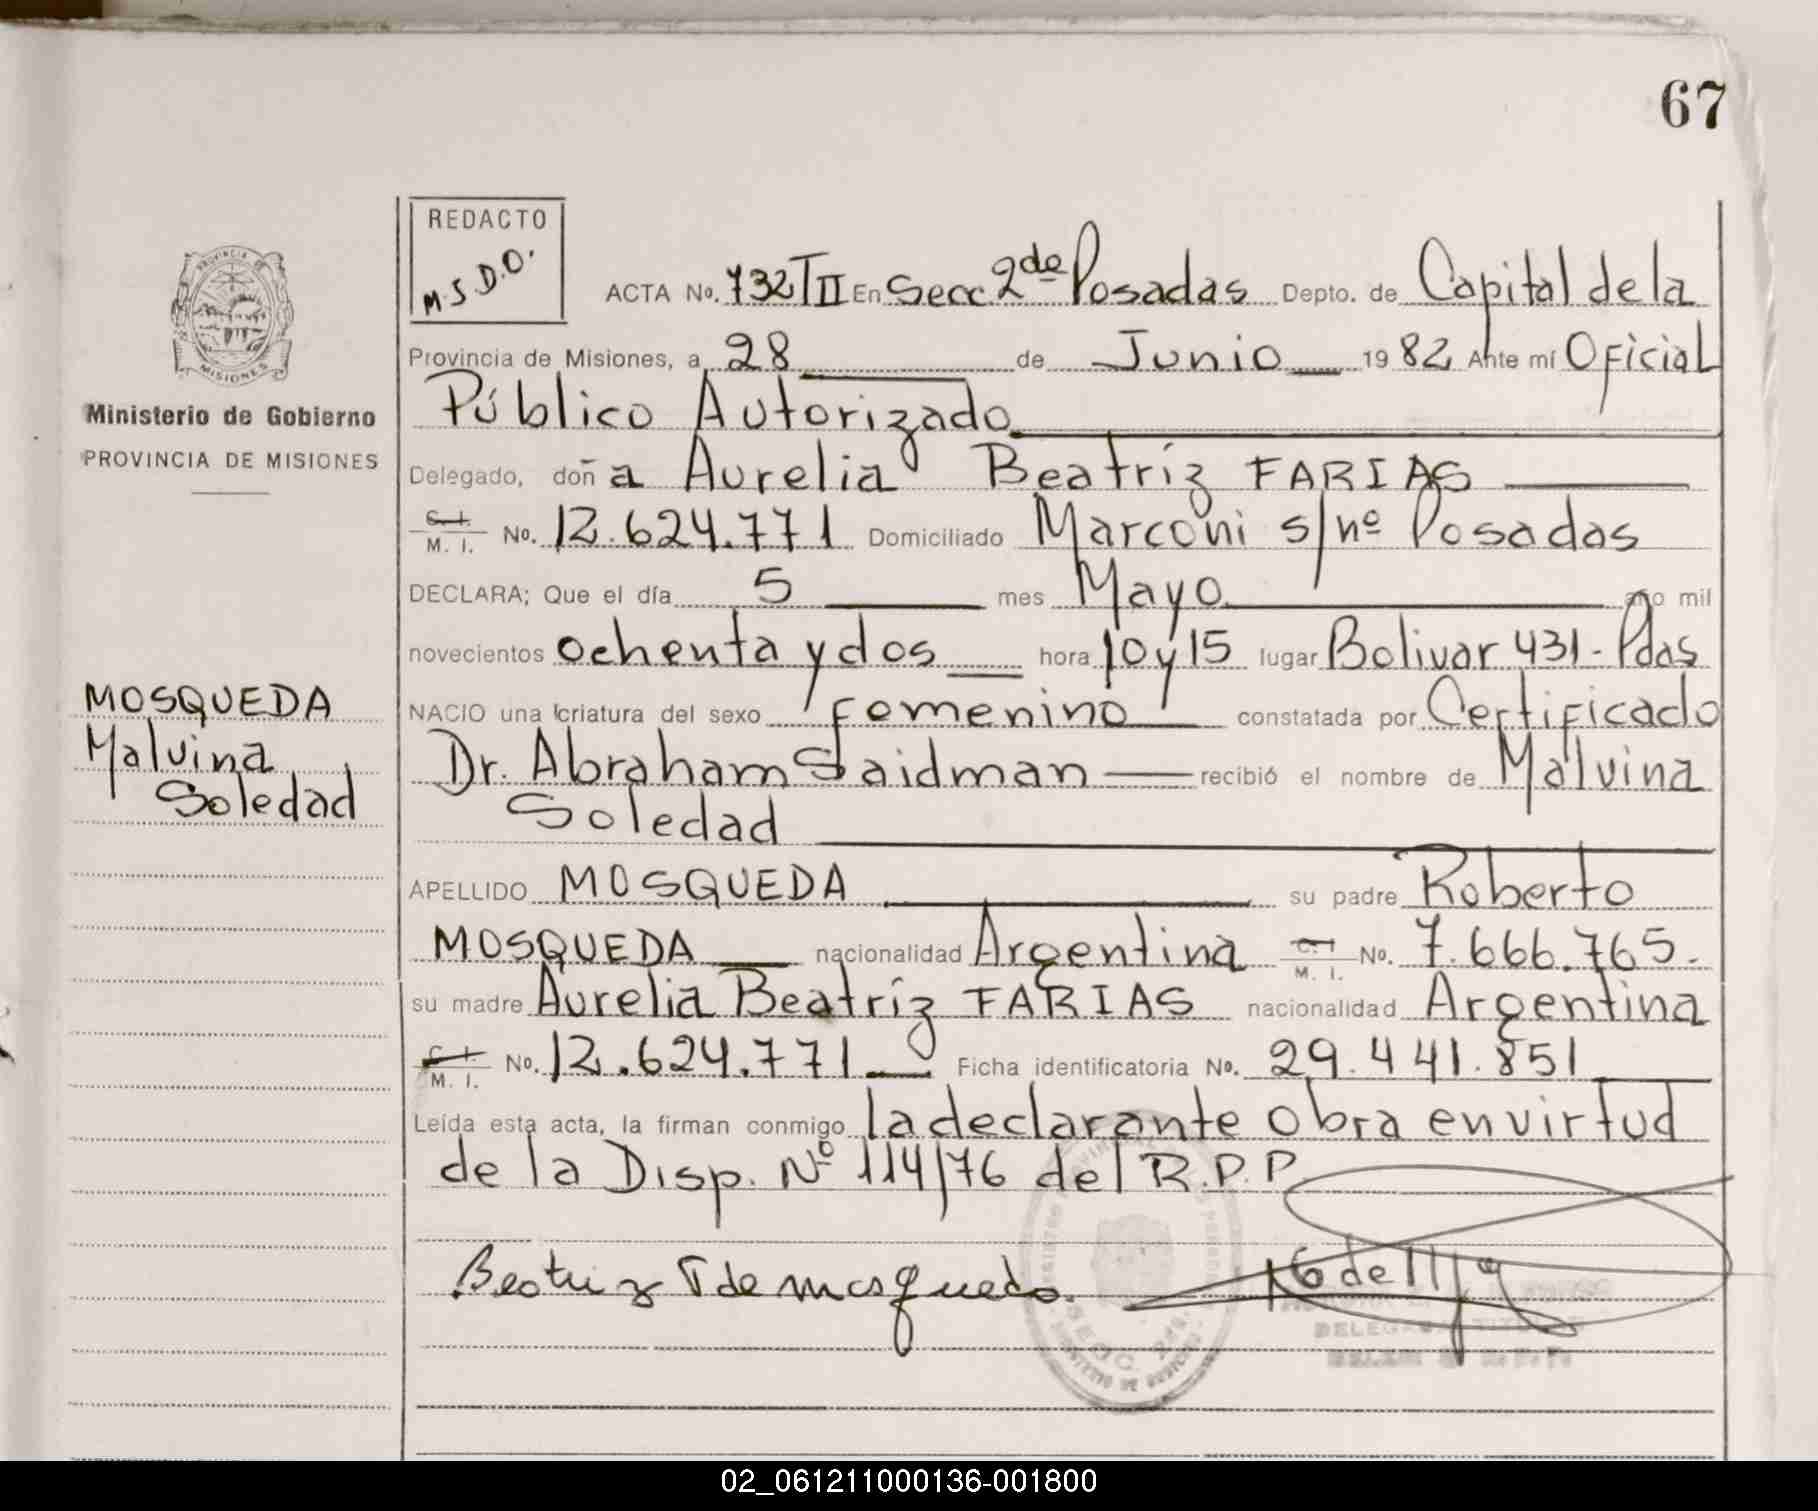 67
REDACTO
M.S.D.O.
ACTA No. 732 T II En Secc 2da de Posadas Depto. de Capital de la
Provincia de Misiones, a 28 de Junio 19 82 Ante mí Oficial
Público Autorizado
Delegado, doña Aurelia Beatríz FARIAS
C.I. M. I. No. 12.624.771 Domiciliado Marconi s/nº Posadas
DECLARA; Que el día 5 mes Mayo año mil
novecientos ochenta y dos hora 10 y 15 lugar Bolivar 431 - Pdas
NACIO una criatura del sexo femenino constatada por Certificado
Dr. Abraham Saidman recibió el nombre de Malvina
Soledad
APELLIDO MOSQUEDA su padre Roberto
MOSQUEDA nacionalidad Argentina C.I. M. I. No. 7.666.765.
su madre Aurelia Beatríz FARIAS nacionalidad Argentina
C.I. M. I. No. 12.624.771 Ficha identificatoria No. 29.441.851
Leída esta acta, la firman conmigo la declarante obra en virtud
de la Disp. Nº 114/76 del R.P.P.
Beatriz F de Mosqueda
PROVINCIA DE
MISIONES
Ministerio de Gobierno
PROVINCIA DE MISIONES
MOSQUEDA
Malvina
Soledad
02_061211000136-001800